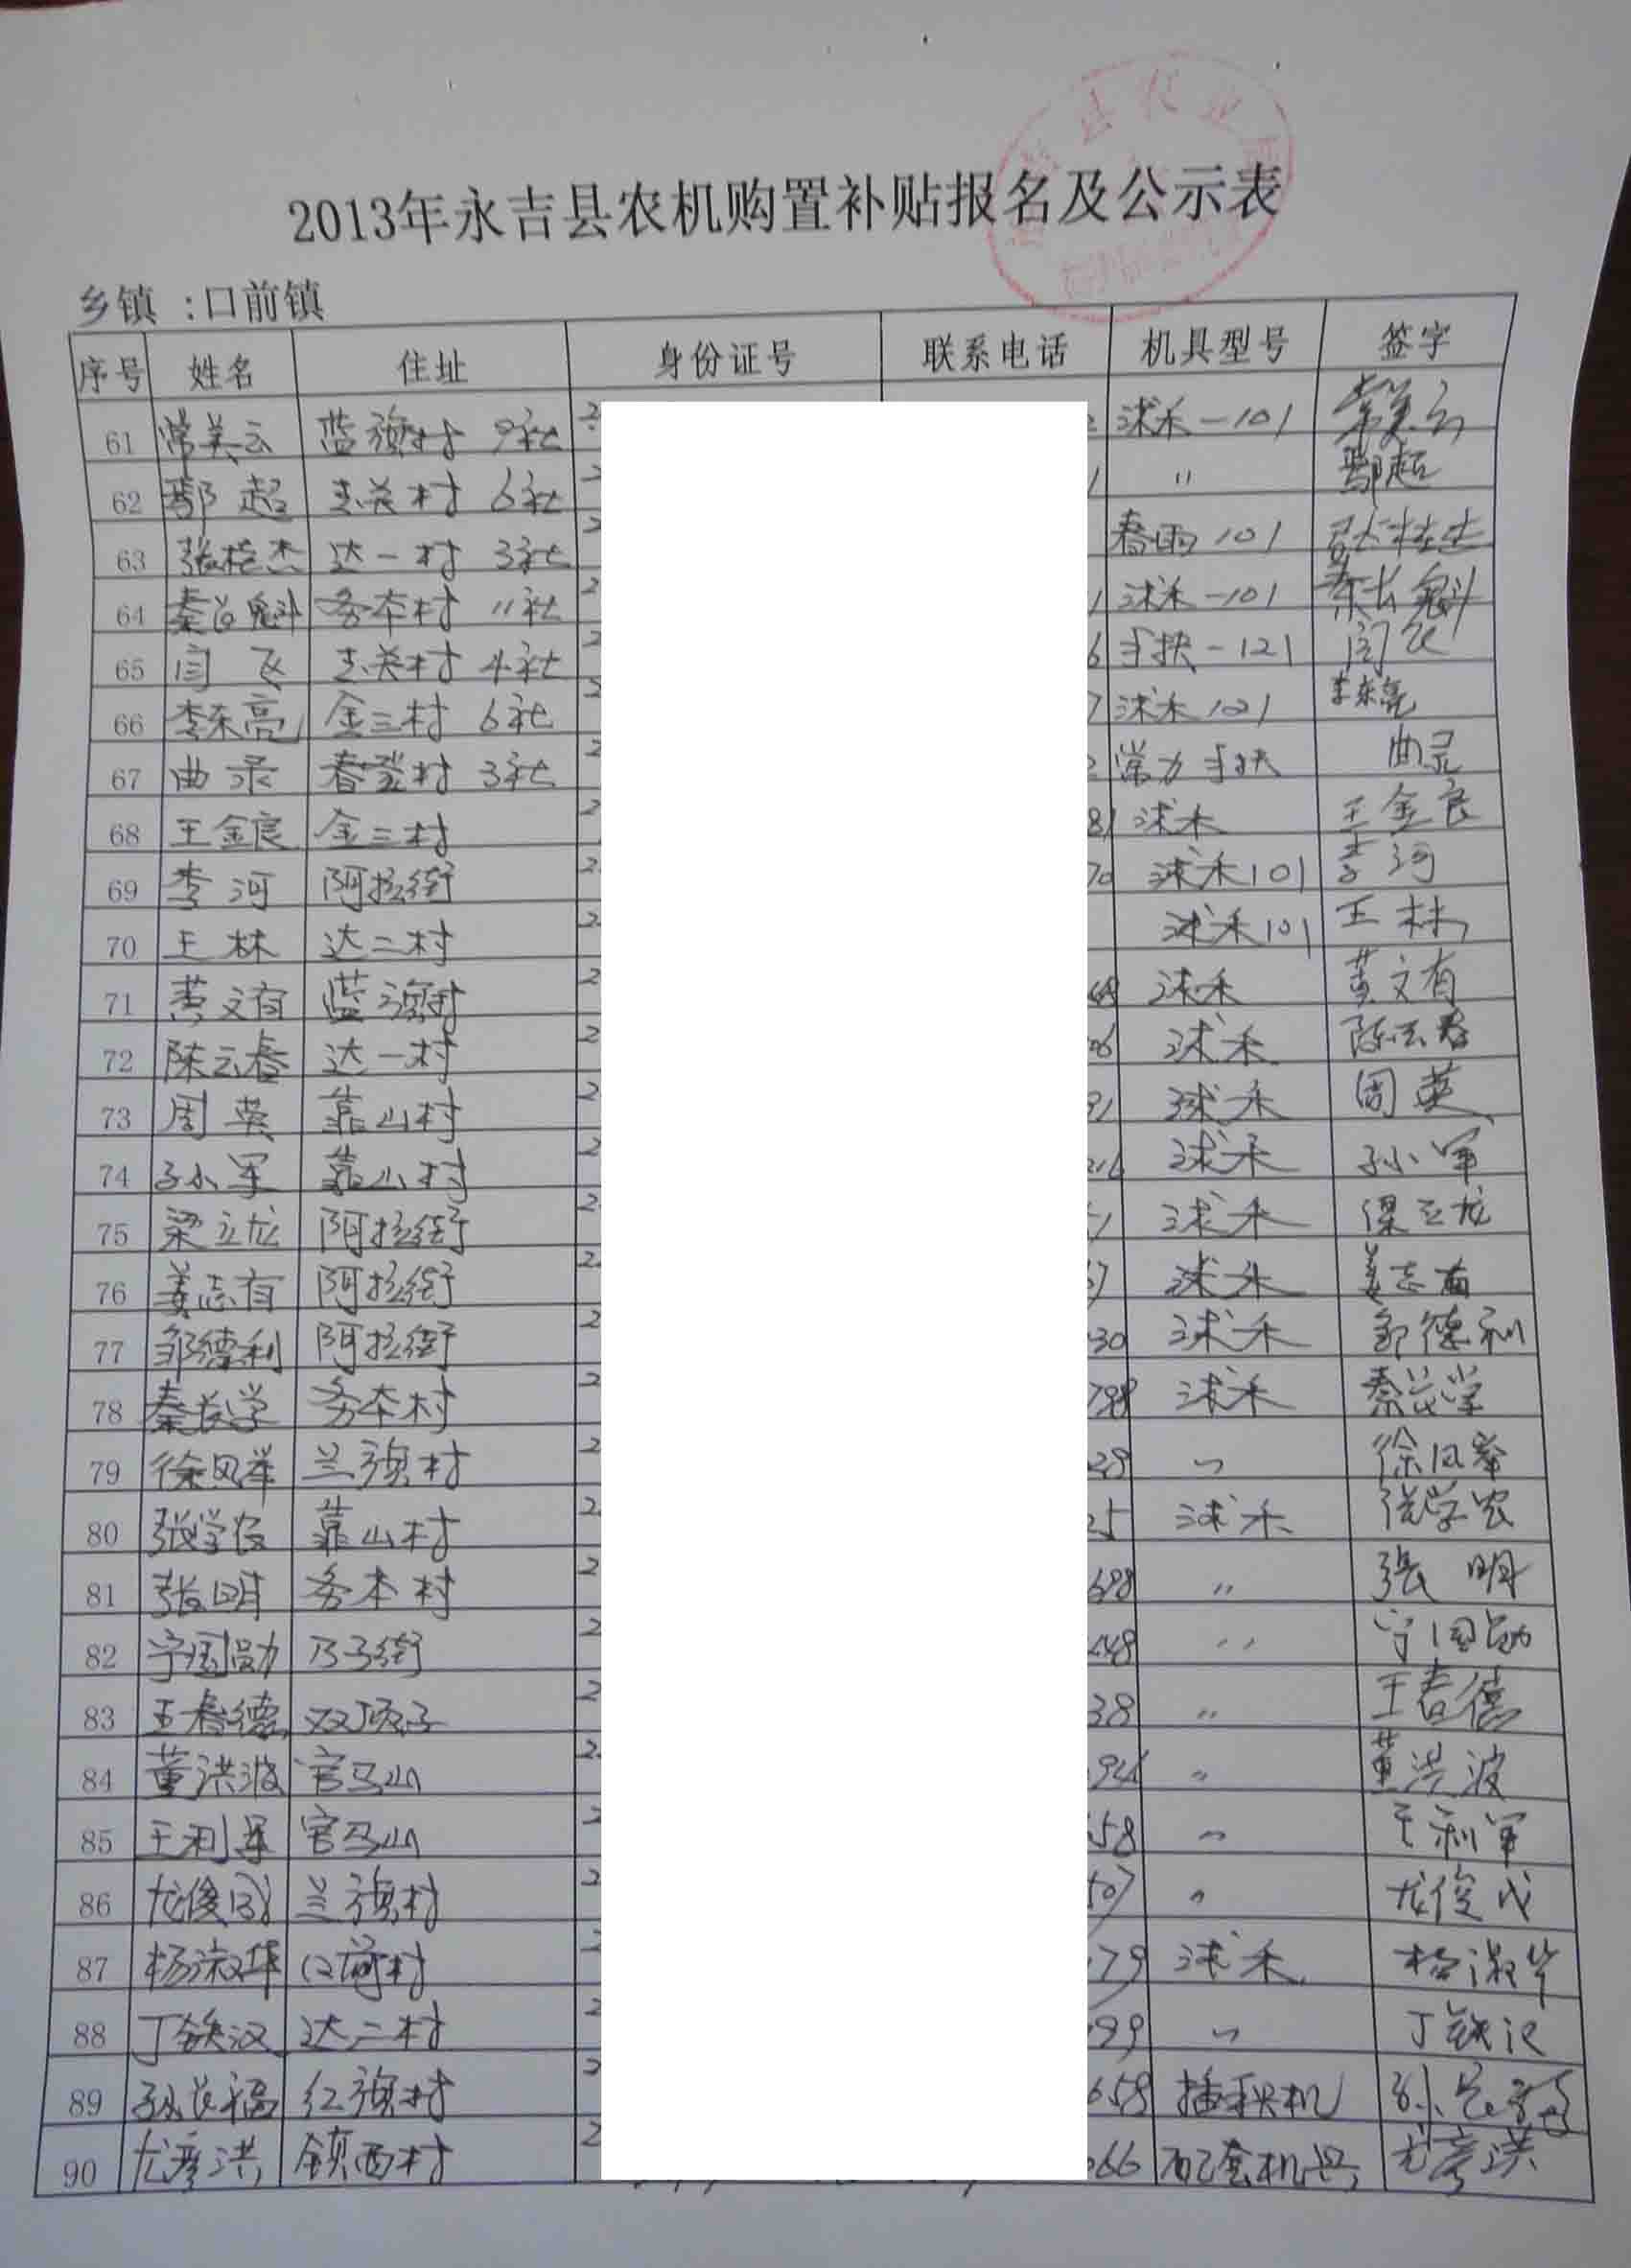 2013年永吉县农机购置补贴报名及公示表
乡镇 :口前镇
序号 姓名 住址 身份证号 联系电话 机具型号 签字
61 常美云 蓝旗村 9社 2 球禾-101 常美云
62 鄂超 6社 2 1 〃 鄂超
63 张桂杰 达一村 3社 2 春雨101 张桂杰
64 秦长魁 务本村 11社 2 1 球禾-101 秦长魁
65 闫飞 4社 2 6 手扶-121 闫飞
66 李东亮 金三村 6社 2 7 球禾121 李东亮
67 曲录 春登村 3社 2 2 常力手扶 曲录
68 王金良 金三村 2 81 球禾 王金良
69 李河 阿拉街 2 70 球禾101 李河
70 王林 达二村 2 球禾101 王林
71 黄文有 蓝旗村 2 球禾 黄文有
72 陈云春 达一村 2 06 球禾 陈云春
73 周英 靠山村 2 91 球禾 周英
74 孙小军 靠山村 2 216 球禾 孙小军
75 梁立龙 阿拉街 2 1 球禾 梁立龙
76 姜志有 阿拉街 2 7 球禾 姜志有
77 邹德利 阿拉街 2 30 球禾 邹德利
78 秦长学 务本村 2 798 球禾 秦长学
79 徐凤举 兰旗村 2 28 〃 徐凤举
80 张学农 靠山村 2 25 球禾 张学农
81 张明 务本村 2 698 〃 張明
82 宁国勋 乃子街 2 448 〃 宁国勋
83 王春德 双顶子 2 38 〃 王春德
84 董洪波 官马山 2 〃 董洪波
85 王利军 官马山 2 58 〃 王利军
86 龙俊成 兰旗村 2 507 〃 龙俊成
87 杨淑华 口前村 2 79 球禾 杨淑华
88 丁铁汉 达二村 2 99 〃 丁铁汉
89 孙长福 红旗村 2 658 插秧机 孙长福
90 尤彦洪 镇西村 2 666 配套机具 尤彦洪